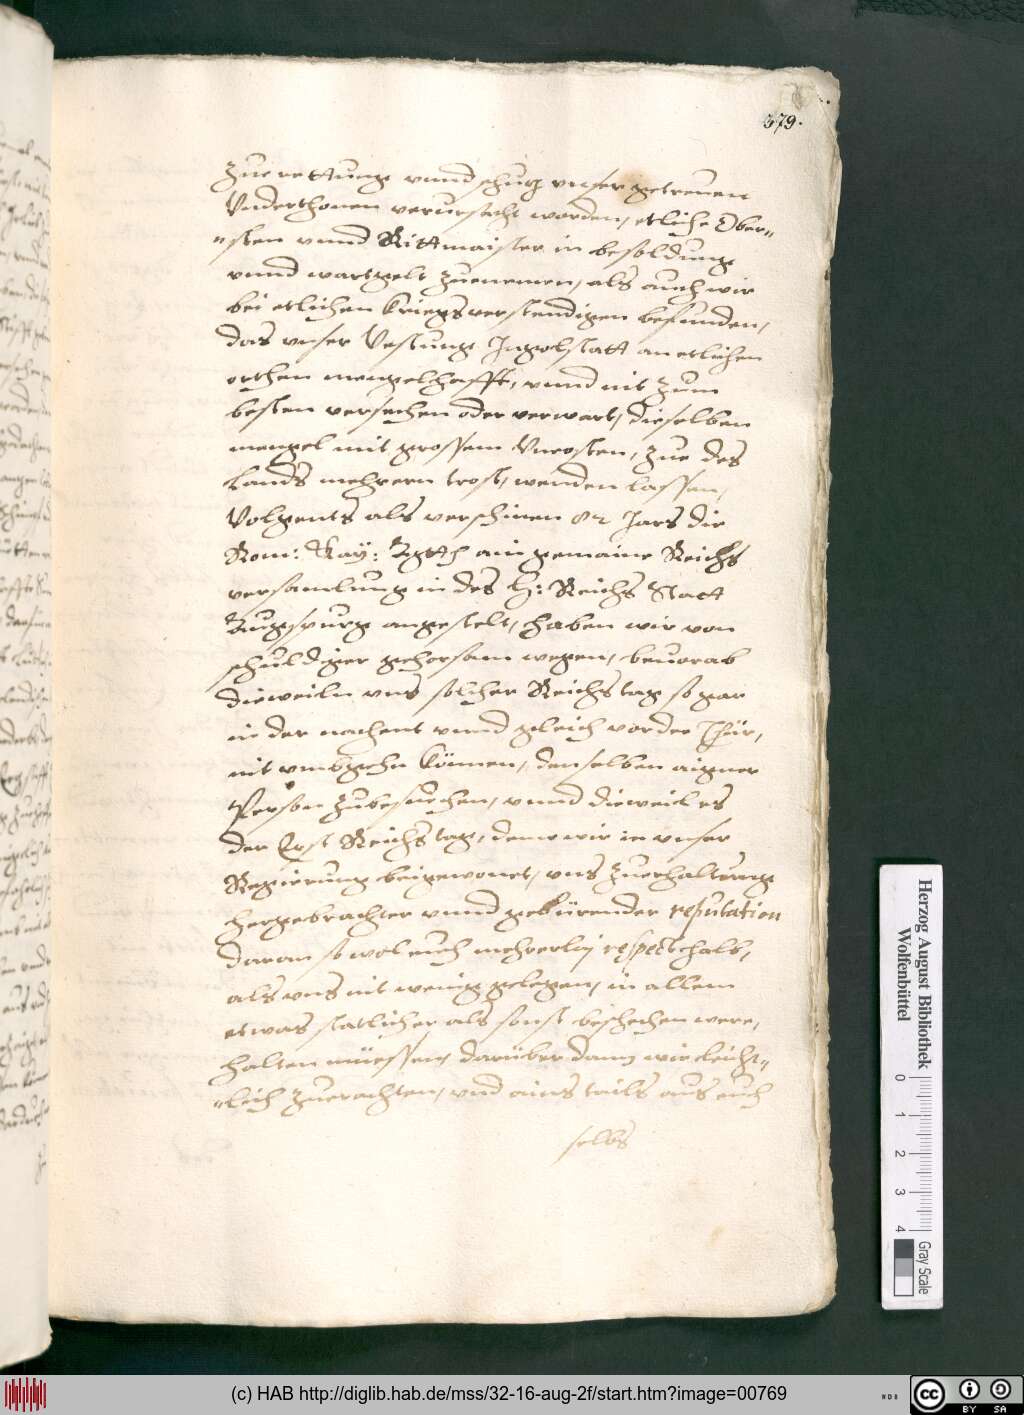 379.
Zue rettung vnnd schutz vnser getrewen
Vnderthonen verursacht worden, etliche Ober=
=sten vnnd Rittmaister in besoldung
vnnd wartgelt zuenemen, als auch wir
bei etlichen Kriegsverstendigen befunden,
das vnser Vestung Ingolstatt an etlichen
orthen mengelhafft, vnnd nit zum
besten versechen oder verwart, dieselben
mengel mit grossem Vncosten, zue des
Lands mehrern trost, wenden lassen,
Volgents als verschinen 82 Jars die
Röm: Kay: Mgtt ain gemaine Reichs
versamlung in des H: Reichs Statt
Augspurg angestelt, haben wir von
schuldiger gehorsam wegen, beuorab
dieweiln vns solcher Reichstag so gar
in der nachent vnnd gleich vor der Thür,
nit vmbgehn Können, denselben aigner
Person zubesuechen, vnnd dieweil es
der Erst Reichstag, deme wir in vnser
Regierung beigewonet, vns zuerhaltung
hergebrachter vnnd gebürender reputation
daran so wol auch mehrerlej respect halb,
als vns nit wenig gelegen, in allem
etwas statlicher als sonst beschechen were,
halten müessen, darüber dann wie leicht=
=lich zuerachten, vnd ains tails aus euch
selbs
Herzog August Bibliothek
Wolfenbüttel
0 1 2 3 4
Gray Scale
(c) HAB http://diglib.hab.de/mss/32-16-aug-2f/start.htm?image=00769
WDB
cc BY SA